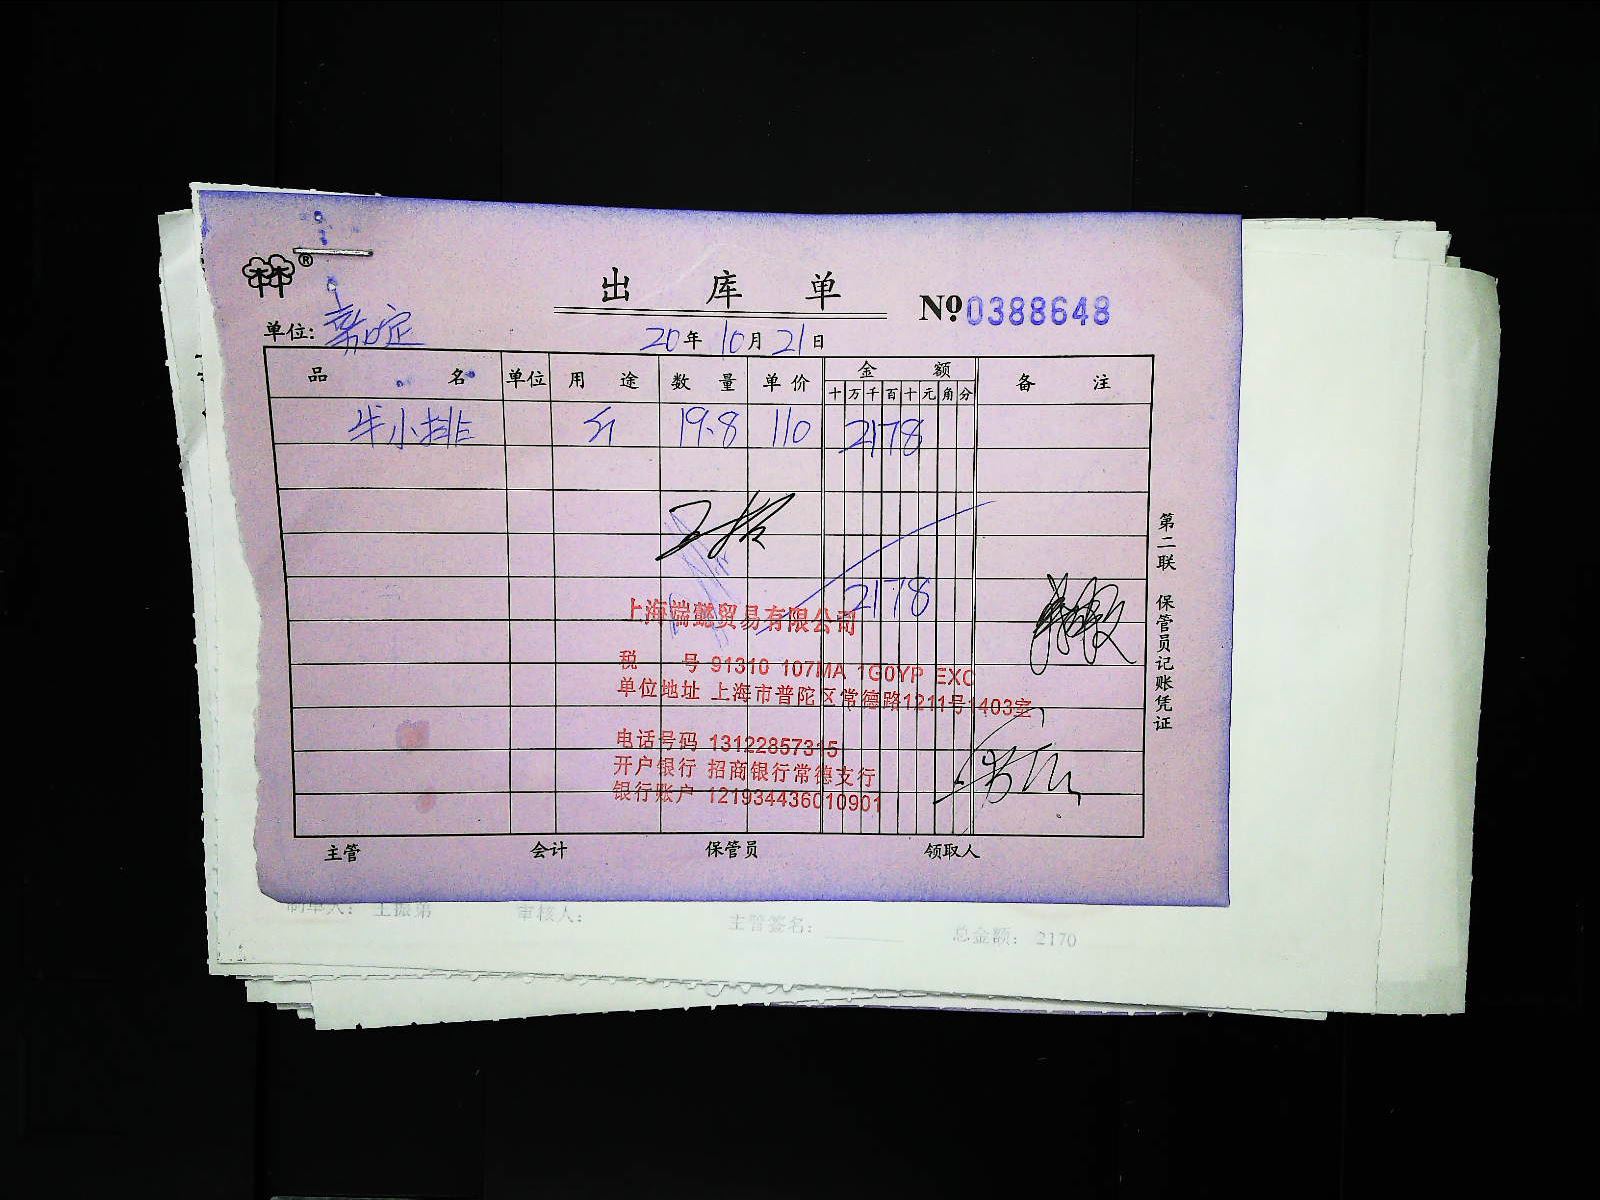 出 库 单
№0388648
单位:
20年10月21日
品 名 单位 用 途 数 量 单 价 金 额 备 注
十 万 千 百 十 元 角 分
牛小排 斤 19.8 110 2178
2178
上海端懿贸易有限公司
税 号 91310 107MA 1G0YP EXC
单位地址 上海市普陀区常德路1211号1403室
电话号码 13122857315
开户银行 招商银行常德支行
银行账户 121934436010901
第二联 保管员记账凭证
主管 会计 保管员 领取人
制单人: 王振第 审核人: 主管签名: 总金额: 2170